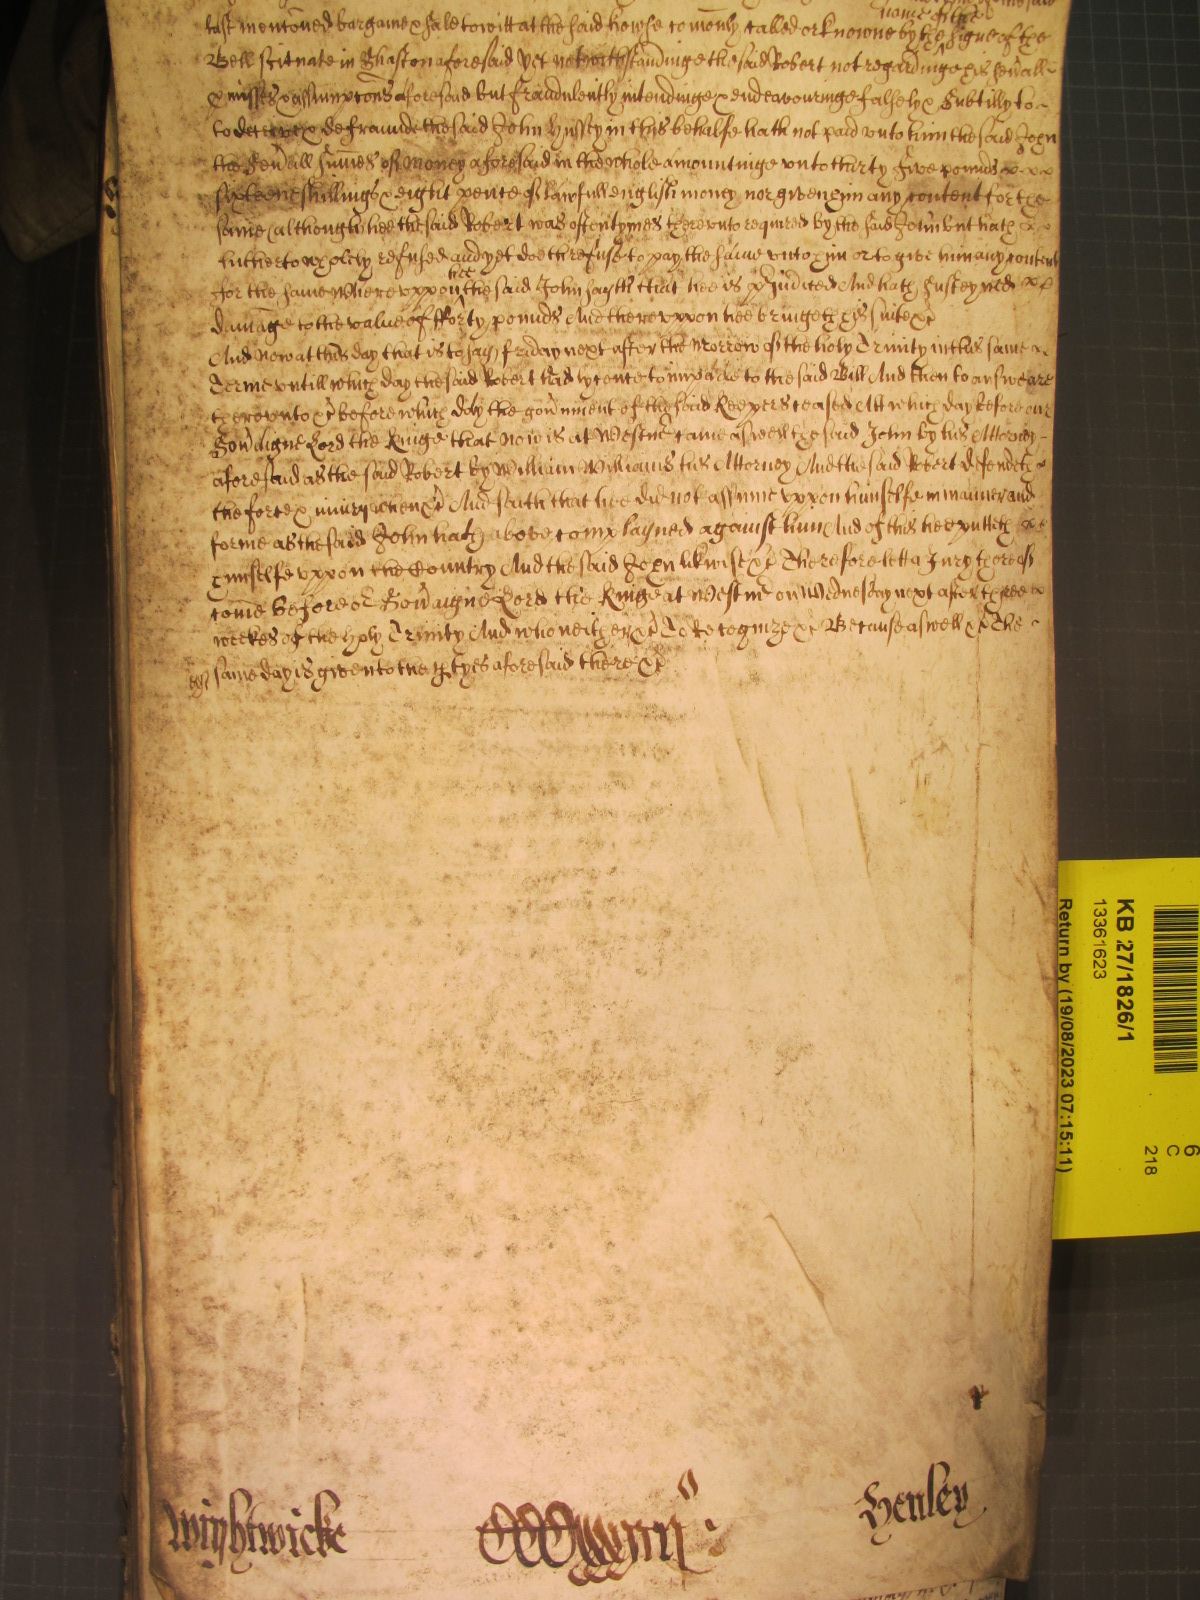 name of the
last mentoned bargaine & sale to witt at the said howse comonly called or knowne by the signe of the
Bell scituate in Shaston aforesaid Yet notwithstandinge the said Robert not regardinge his sevall
&misses & assumpcons aforesaid but fraudulently intendinge & endeavouringe falsely & Subtilly to
to deceive & defraude the said John Hussey in this behalfe hath not paid unto him the said John
the sevall sumes of money aforesaid in the whole amountinge unto thirty five pounds
sixteene shillings & eight pence of lawfull english money nor given him any content for the
same (although hee the said Robert was oftentymes thereunto required by the said John but hath
hitherto wholely refused and yet doeth refuse to pay the same unto him or to give him any content
hee
for the same Whereuppon the said John sayth that hee is p'judiced And hath susteyned
damage to the value of fforty pounds And thereuppon hee bringeth his suite &c
And now at this day that is to say friday next after the Morrow of the holy Trinity in this same
Terme untill which day the said Robert had lycence to imparle to the said Bill And then to answeare
thereunto &c before which day the govnment of the said Keepers ceased Att which day before our
Sovaigne Lord the Kinge that now is at Westm came aswell the said John by his Attorney
aforesaid as the said Robert by William Williams his Attorney And the said Robert defendeth
the force & iniury when &c And saith that hee did not assume uppon himselfe in manner and
forme as the said John hath above complayned against him And of this hee putteth
himselfe uppon the Country And the said John likwise &c Therefore lett a Jury thereof
come before or Sovaigne Lord the Kinge at Westm on Wednesday next after three
weekes of the holy Trinity And who neither &c To Recognize &c Because aswell &c The
same day is given to the ptyes aforesaid there &c
Wightwicke
Henley
KB 27/1826/1
13361623
Return by (19/08/2023 07:15:11)
6
C
218